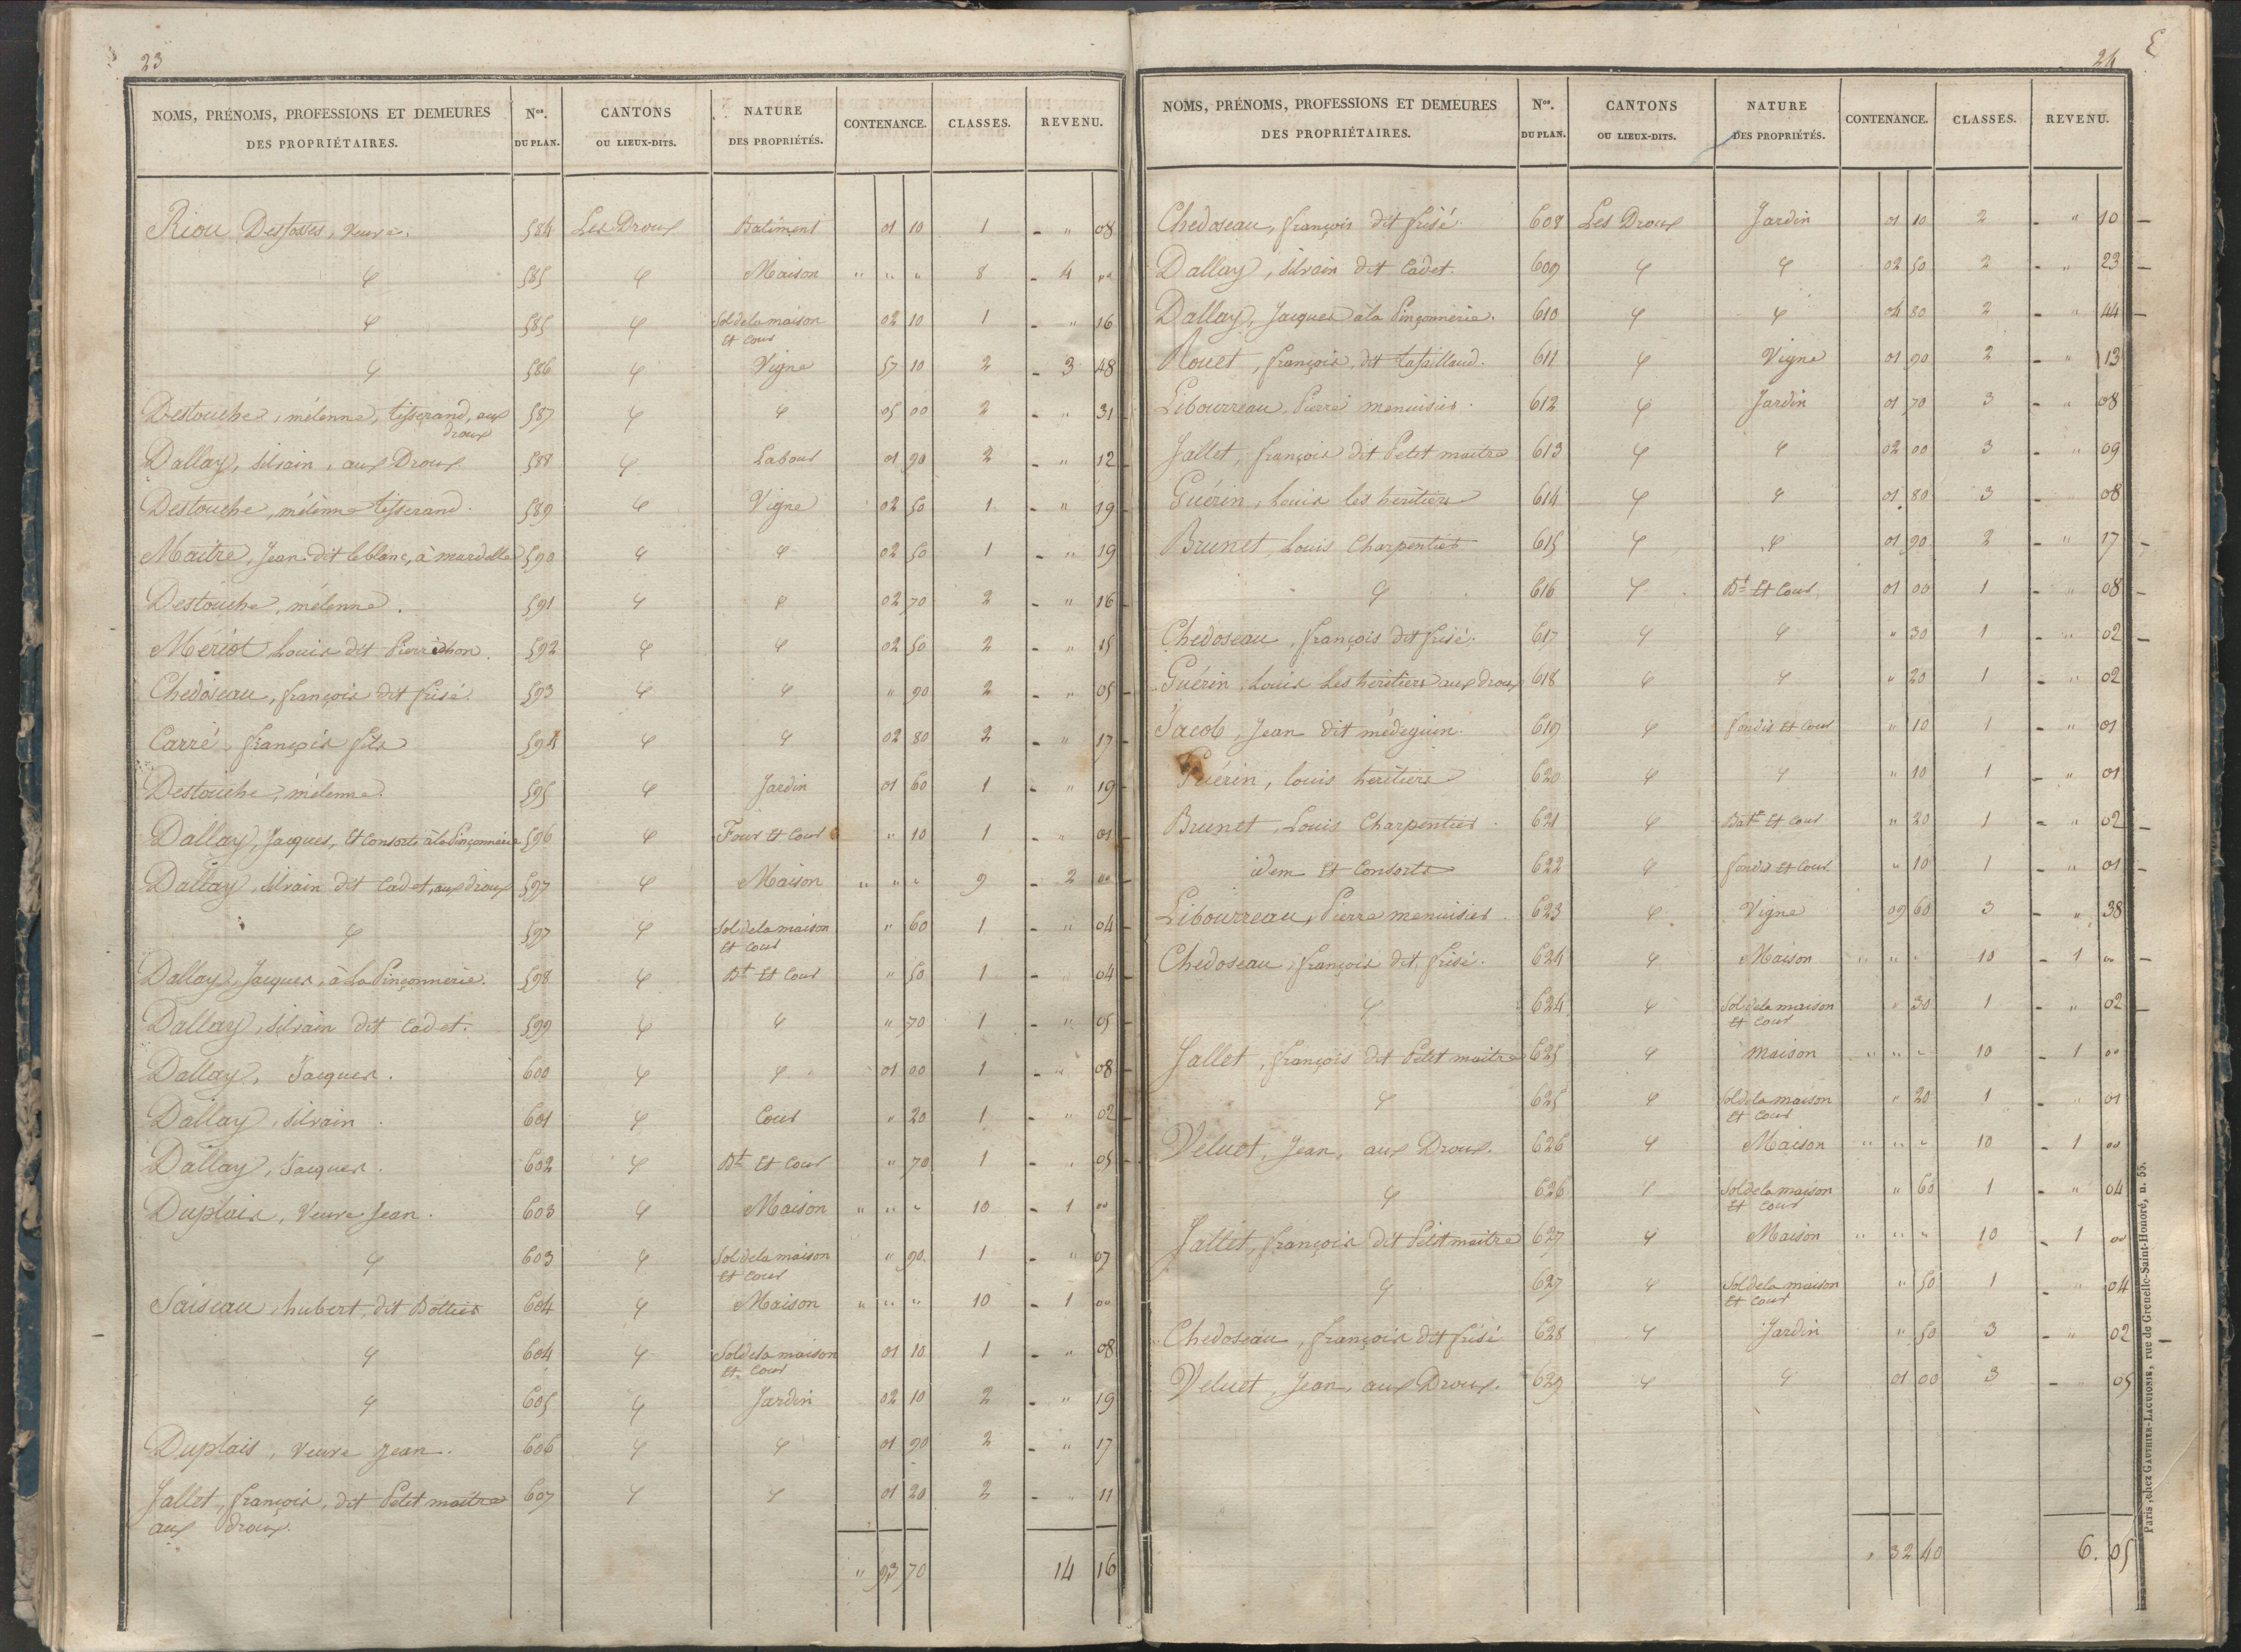 23
NOMS, PRÉNOMS, PROFESSIONS ET DEMEURES DES PROPRIÉTAIRES. Nos. DU PLAN. CANTONS OU LIEUX-DITS. NATURE DES PROPRIÉTÉS. CONTENANCE. CLASSES. REVENU.
Riou Desfosses, Veuve. 584 Les Droux Batiment 01 10 1 - " 08
φ 585 φ Maison " " " 8 - 4 ""
φ 585 φ Sol de la maison et Cour 02 10 1 - " 16
φ 586 φ Vigne 57 10 2 - 3 48
Destouche, mélenne, tisserand, aux droux 587 φ φ 05 00 2 - " 31
Dallay, silvain, aux Droux 588 φ Labour 01 90 2 - " 12
Destouche, mélenne tisserand. 589 φ Vigne 02 50 1 - " 19
Maitre, Jean dit leblanc, à mardelle 590 φ φ 02 50 1 - " 19
Destouche, mélenne. 591 φ φ 02 70 2 - " 16
Meriot Louis dit Pierrichon. 592 φ φ 02 50 2 - " 15
Chedoseau, françois dit frisé. 593 φ φ " 90 2 - " 05
Carré, françois fils 594 φ φ 02 80 2 - " 17
Destouche, mélenne. 595 φ Jardin 01 60 1 - " 19
Dallay, Jacques, et Consorts à la Pinçonnerie 596 φ Four et Cour " 10 1 - " 01
Dallay, silvain dit Cadet, aux droux 597 φ Maison " " " 9 - 2 ""
φ 597 φ Sol de la maison et Cour " 60 1 - " 04
Dallay, Jacques, à la Pinçonnerie. 598 φ Bt et Cour " 50 1 - " 04
Dallay, silvain dit Cadet. 599 φ φ " 70 1 - " 05
Dallay, Jacques. 600 φ φ 01 00 1 - " 08
Dallay, silvain. 601 φ Cour " 20 1 - " 02
Dallay, Jacques. 602 φ Bt et Cour " 70 1 - " 05
Duplais, Veuve Jean. 603 φ Maison " " " 10 - 1 ""
φ 603 φ Sol de la maison et Cour " 90 1 - " 07
Saiseau, hubert, dit Bottier 604 φ Maison " " " 10 - 1 ""
φ 604 φ Sol de la maison et Cour 01 10 1 - " 08
φ 605 φ Jardin 02 10 2 - " 19
Duplais, Veuve Jean. 606 φ φ 01 90 2 - " 17
Jallet, françois, dit Petit maitre aux droux. 607 φ φ 01 20 2 - " 11
" 93 70 14 16
24
NOMS, PRÉNOMS, PROFESSIONS ET DEMEURES DES PROPRIÉTAIRES. Nos. DU PLAN. CANTONS OU LIEUX-DITS. NATURE DES PROPRIÉTÉS. CONTENANCE. CLASSES. REVENU.
Chedoseau, françois dit frisé. 608 Les Droux Jardin 01 10 2 - " 10
Dallay, silvain dit Cadet. 609 φ φ 02 50 2 - " 23
Dallay, Jacques à la Pinçonnerie. 610 φ φ 04 80 2 - " 44
Rouet, françois, dit 611 φ Vigne 01 90 2 - " 13
Libourreau, Pierre menuisier. 612 φ Jardin 01 70 3 - " 08
Jallet, françois dit Petit maitre 613 φ φ 02 00 3 - " 09
Guérin, Louis les héritiers 614 φ φ 01 80 3 - " 08
Brunet, Louis Charpentier 615 φ φ 01 90 2 - " 17
φ 616 φ Bt et Cour 01 00 1 - " 08
Chedoseau, françois dit frisé. 617 φ φ " 30 1 - " 02
Guérin, Louis les héritiers aux droux 618 φ φ " 20 1 - " 02
Jacob, Jean dit médeguin. 619 φ fondis et Cour " 10 1 - " 01
Guérin, louis héritiers 620 φ φ " 10 1 - " 01
Brunet, Louis Charpentier. 621 φ Batt et Cour " 20 1 - " 02
idem et Consorts 622 φ fondis et Cour " 10 1 - " 01
Libourreau, Pierre menuisier. 623 φ Vigne 09 60 3 - " 38
Chedoseau, françois dit, frisé. 624 φ Maison " " " 10 - 1 ""
φ 624 φ Sol de la maison et Cour " 30 1 - " 02
Jallet, françois dit Petit maitre 625 φ maison " " " 10 - 1 ""
φ 625 φ Sol de la maison et Cour " 20 1 - " 01
Veluet, Jean, aux Droux. 626 φ Maison " " " 10 - 1 ""
φ 626 φ Sol de la maison et Cour " 60 1 - " 04
Jallet, françois dit Petit maitre 627 φ Maison " " " 10 - 1 ""
φ 627 φ Sol de la maison et Cour " 50 1 - " 04
Chedoseau, françois dit frisé 628 φ Jardin " 50 3 - " 02
Veluet, Jean, aux Droux. 629 φ φ 01 00 3 - " 05
" 32 40 6. 05
Paris, chez GAUTHIER-LAGUIONIE, rue de Grenelle-Saint-Honoré, n. 55.